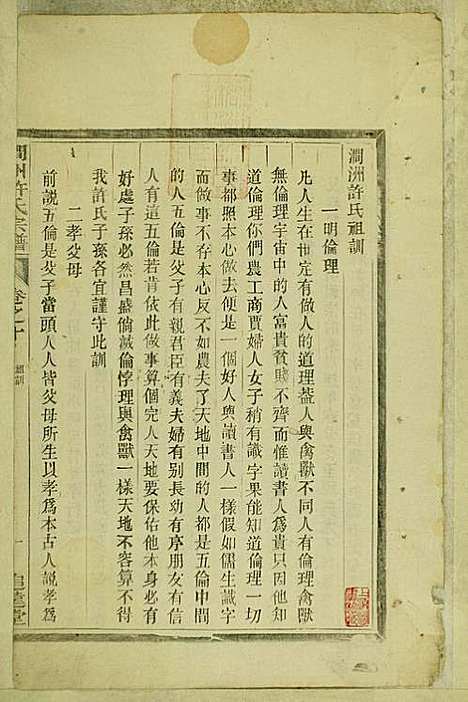 澗洲許氏祖訓
一明倫理
凡人生在世定有做人的道理葢人與禽獸不同人有倫理禽獸
無倫理宇宙中的人富貴貧賤不齊而惟讀書人爲貴只因他知
道倫理你們農工商賈婦人女子稍有識字果能知道倫理一切
事都照本心做去便是一個好人與讀書人一樣假如儒生識字
而做的事不存本心反不如農夫了天地中間的人都是五倫中間
的人五倫是父子有親君臣有義夫婦有别長幼有序朋友有信
人有這五倫若肯依此做事算個完人天地要保佑他本身必有
好處子孫必然昌盛倘滅倫悖理與禽獸一樣天地不容算不得
我許氏子孫各宜謹守此訓
二孝父母
前説五倫是父子當頭人人皆父母所生以孝爲本古人説孝爲
澗洲許氏宗譜
卷之十
祖訓
一